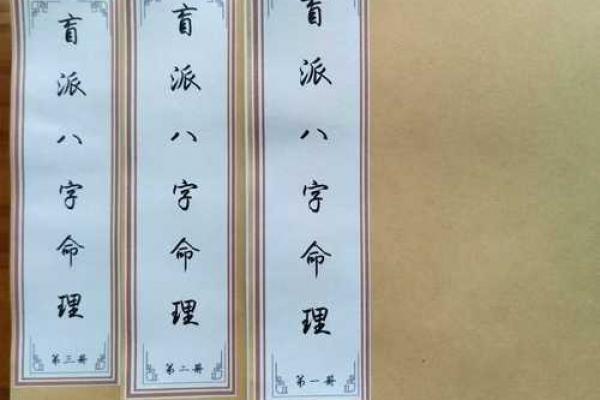 盲派八字命理
第一册
盲派八字命理
第二册
盲派八字命理
第三册